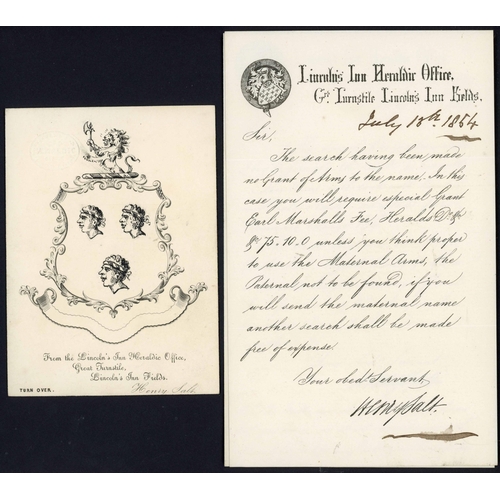 From the Lincoln's Inn Heraldic Office,
Great Turnstile,
Lincoln's Inn Fields.
TURN OVER.
Henry Salt.
Lincoln's Inn Heraldic Office,
Gt. Turnstile Lincoln's Inn Fields.
July 13th. 1854
Sir,
The search having been made
no Grant of Arms to the name, In this
case you will require especial Grant
Earl Marshalls Fee, Heralds Do. &c
&c 75.10.0 unless you think proper
to use the Maternal Arms, the
Paternal not to be found, if you
will send the maternal name
another search shall be made
free of expense.
Your obedt. Servant
Henry Salt.